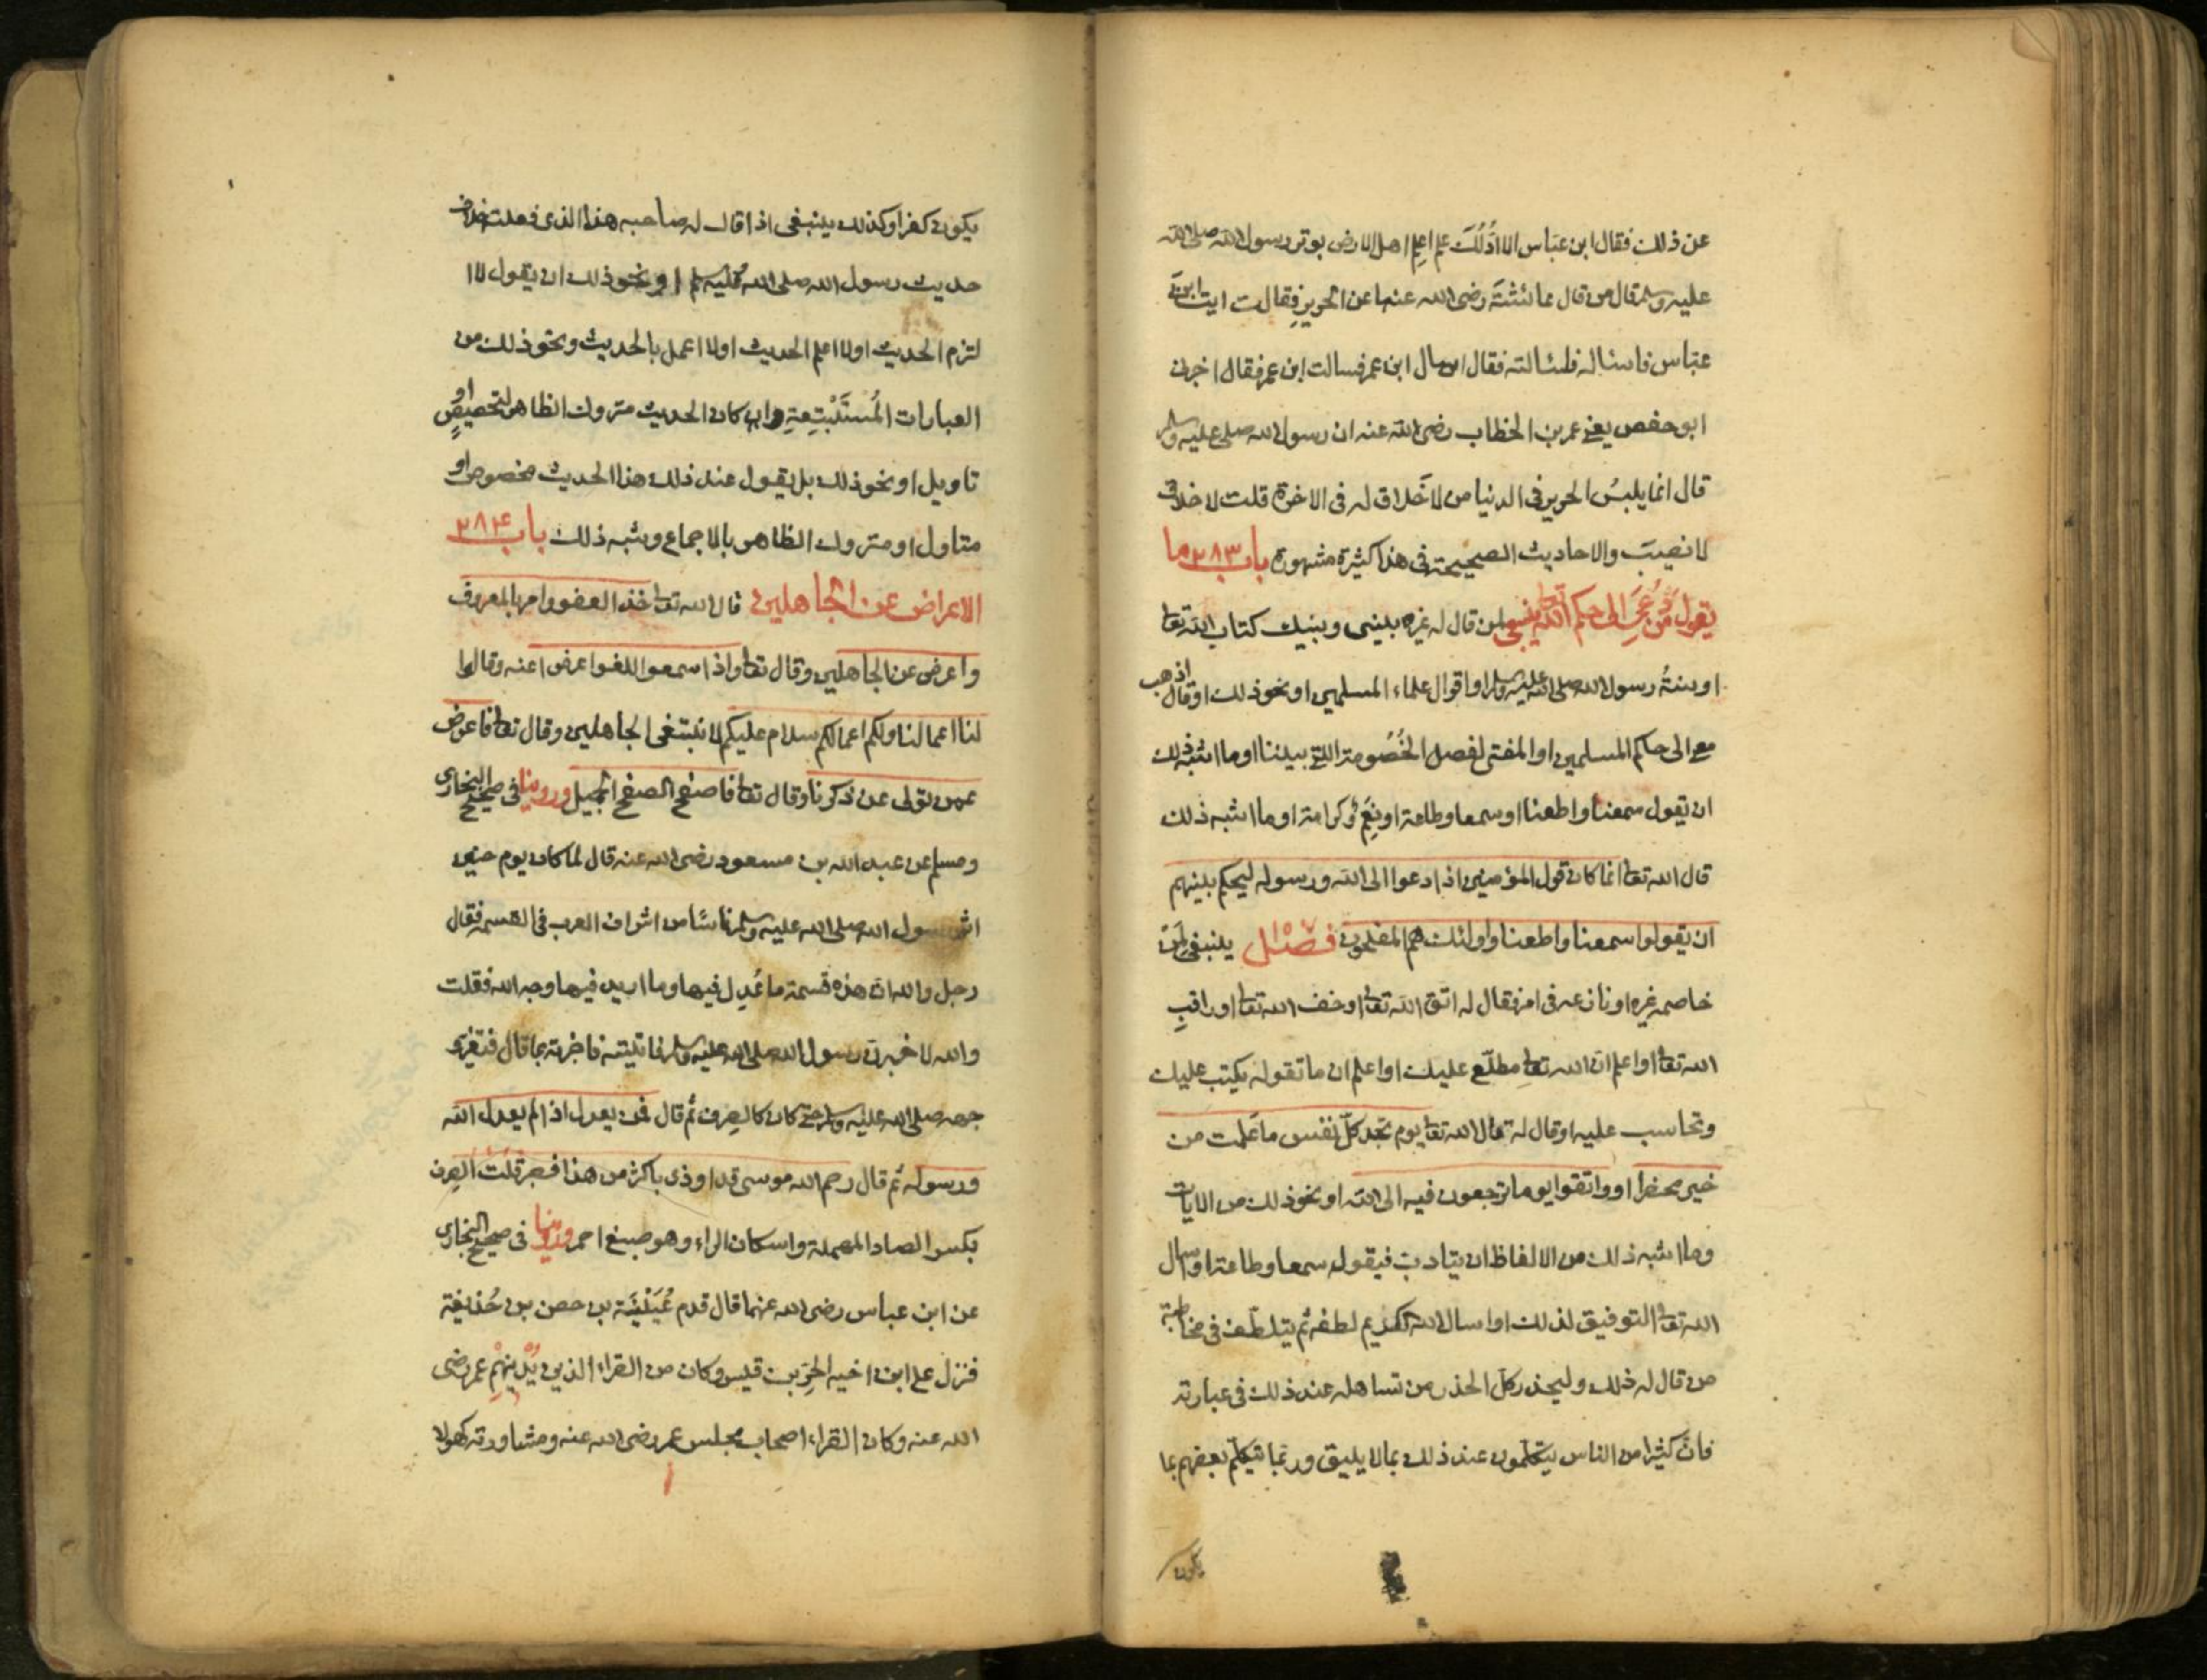 عن ذلك فقال ابن عباس الا ادُلُّكَ علم اعلم اهل الارض بوتر رسول الله صلى الله
عليه وسلم قال من قال عائشة رضى الله عنها عن الحرير فقالت ايت ابن
عباس فاساله فلسالته فقال سال ابن عمر فسالت ابن عمر فقال اخبرنى
ابو حفص يعنى عمر بن الخطاب رضى الله عنه ان رسول الله صلى عليه وسلم
قال انما يلبسُ الحرير فى الدنيا من لا خَلاق له فى الاخرة قلت لا خلاق
لا نصيب والاحاديث الصحيحة فى هذا كثيرة مشهورة باب ٢٨٣ ما
يقول من دُعِىَ الى حكم الله تعا ينبغى لمن قال له غيره بينى وبينك كتاب الله تعا
او سنةُ رسول الله صلى الله عليه وسلم او اقوال علماء المسلمين او نحو ذلك او قال اذهب
معى الى حاكم المسلمين او المفتى لفصل الخُصُومة التى بيننا او ما اشبه ذلك
ان يقول سمعنا واطعنا او سمعا وطاعة او نِعَم وكرامة او ما اشبه ذلك
قال الله تعا انما كان قول المؤمنين اذا دعوا الى الله ورسوله ليحكم بينهم
ان يقولوا سمعنا واطعنا واولئك هم المفلحون فصل ينبغى لمن
خاصمه غيره او نازعه فى امر فقال له اتق الله تعا او خف الله تعا او راقبِ
الله تعا او اعلم ان الله تعا مطلّع عليك او اعلم ان ما تقوله يكتب عليك
وتحاسب عليه او قال له قال الله تعا يوم تجد كلّ نفس ما عملت من
خير محضرا او واتقوا يوما ترجعون فيه الى الله او نحو ذلك من الايات
وما اشبه ذلك من الالفاظ ان يتادب فيقول سمعا وطاعة او اسال
الله تعا التوفيق لذلك او اسال الله الكريم لطفه ثم يتلطّف فى مخاطبة
من قال له ذلك وليحذر كلّ الحذر من تساهله عند ذلك فى عبارته
فانّ كثيرا من الناس يتكلّمون عند ذلك بما لا يليق وربما تيكلّم بعضهم بما
يكون
يكون كفرا وكذلك ينبغى اذا قال له صاحبه هذا الذى فعلت خلاف
حديث رسول الله صلى الله عليه وسلم او نحو ذلك ان يقول لا ا
لتزم الحديث او لا اعلم الحديث او لا اعمل بالحديث ونحو ذلك من
العبارات المُستَبْشِعةِ وان كان الحديث متروك الظاهر لتخصيصٍ او
تاويل او نحو ذلك بل يقول عند ذلك هذا الحديث مخصوص او
متاول او متروك الظاهر بالاجماع وشبه ذلك باب ٢٨٤
الاعراض عن الجاهلين قال الله تعا خذ العفو وامر بالمعروف
واعرض عن الجاهلين وقال تعا واذا سمعوا اللغو اعرضوا عنه وقالوا
لنا اعمالنا ولكم اعمالكم سلام عليكم لا نبتغى الجاهلين وقال تعا فاعرض
عمن تولى عن ذكرنا وقال تعا فاصفح الصفح الجميل وروينا فى صحيح البخارى
ومسلم عن عبد الله بن مسعود رضى الله عنه قال لما كان يوم حنين
اثر رسول الله صلى الله عليه وسلم ناسًا من اشراف العرب فى القسمه فقال
رجل والله ان هذه قسمة ما عُدِل فيها وما اريد فيها وجه الله فقلت
والله لاخبرن رسول الله صلى الله عليه وسلم فاتيته فاخبرته بما قال فتغير و
جهه صلى الله عليه وسلم حتى كان كالصِرف ثم قال فمن يعدل اذا لم يعدل الله
ورسوله ثم قال رحم الله موسى قد اوذى باكثر من هذا فصبر قلت الصِرف
بكسر الصاد المهملة واسكان الراء وهو صبغ احمر وروينا فى صحيح البخارى
عن ابن عباس رضى الله عنهما قال قدم عُيَيْنَة بن حصن بن حُذيفة
فنزل على ابن اخيه الحرّ بن قيس وكان من القراء الذين يُدْنِيْهِمْ عمر رضى
الله عنه وكان القراء اصحاب مجلس عمر رضى الله عنه ومشاورته كهولا